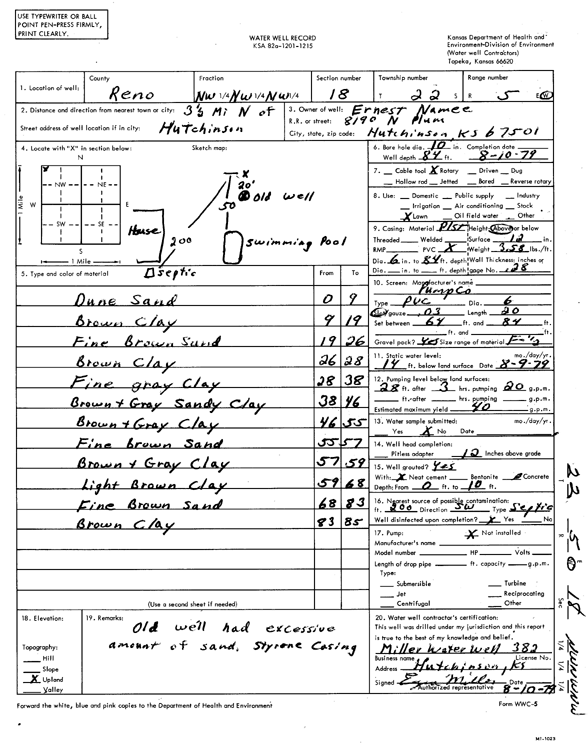 USE TYPEWRITER OR BALL
POINT PEN-PRESS FIRMLY,
PRINT CLEARLY.
WATER WELL RECORD
KSA 82a-1201-1215
Kansas Department of Health and
Environment-Division of Environment
(Water well Contractors)
Topeka, Kansas 66620
1. Location of well:
County Reno
Fraction NW 1/4 NW 1/4 NW 1/4
Section number 18
Township number T 22 S
Range number R 5 E W
2. Distance and direction from nearest town or city: 3½ Mi N of
Street address of well location if in city: Hutchinson
3. Owner of well: Ernest Namee
R.R. or street: 8190 N Plum
City, state, zip code: Hutchinson, KS 67501
4. Locate with "X" in section below:
N
X
NW NE
W E
SW SE
S
1 Mile
1 Mile
Sketch map:
X
20'
Old well
50
House
200
Swimming Pool
septic
5. Type and color of material From To
Dune Sand 0 9
Brown Clay 9 19
Fine Brown Sand 19 26
Brown Clay 26 28
Fine gray Clay 28 38
Brown + Gray Sandy Clay 38 46
Brown + Gray Clay 46 55
Fine Brown Sand 55 57
Brown + Gray Clay 57 59
Light Brown Clay 59 68
Fine Brown Sand 68 83
Brown Clay 83 85
(Use a second sheet if needed)
6. Bore hole dia. 10 in. Completion date
Well depth 84 ft. 8-10-79
7. Cable tool X Rotary Driven Dug
Hollow rod Jetted Bored Reverse rotary
8. Use: Domestic Public supply Industry
Irrigation Air conditioning Stock
X Lawn Oil field water Other
9. Casing: Material Height: Above or below
Threaded Welded Surface 12 in.
RMP PVC X Weight 3.58 lbs./ft.
Dia. 6 in. to 84 ft. depth Wall Thickness: inches or
Dia. in. to ft. depth gage No. .28
10. Screen: Manufacturer's name
PumpCo
Type PVC Dia. 6
Slot/gauze .03 Length 20
Set between 64 ft. and 84 ft.
ft. and ft.
Gravel pack? Yes Size range of material
11. Static water level: mo./day/yr.
14 ft. below land surface Date 8-9-79
12. Pumping level below land surfaces:
28 ft. after 3 hrs. pumping 20 g.p.m.
ft. after hrs. pumping g.p.m.
Estimated maximum yield 40 g.p.m.
13. Water sample submitted: mo./day/yr.
Yes X No Date
14. Well head completion:
Pitless adapter 12 Inches above grade
15. Well grouted? Yes
With: X Neat cement Bentonite Concrete
Depth: From 0 ft. to 10 ft.
16. Nearest source of possible contamination:
ft. 200 Direction SW Type Septic
Well disinfected upon completion? X Yes No
17. Pump: X Not installed
Manufacturer's name
Model number HP Volts
Length of drop pipe ft. capacity g.p.m.
Type:
Submersible Turbine
Jet Reciprocating
Centrifugal Other
18. Elevation:
Topography:
Hill
Slope
X Upland
Valley
19. Remarks:
Old well had excessive
amount of sand. Styrene Casing
20. Water well contractor's certification:
This well was drilled under my jurisdiction and this report
is true to the best of my knowledge and belief.
Miller Water Well 382
Business name License No.
Address Hutchinson, KS
Signed Miller Date 8-10-79
Authorized representative
Forward the white, blue and pink copies to the Department of Health and Environment
Form WWC-5
T 22 R 5 E W Sec 18 1/4 1/4 1/4 NWNWNW